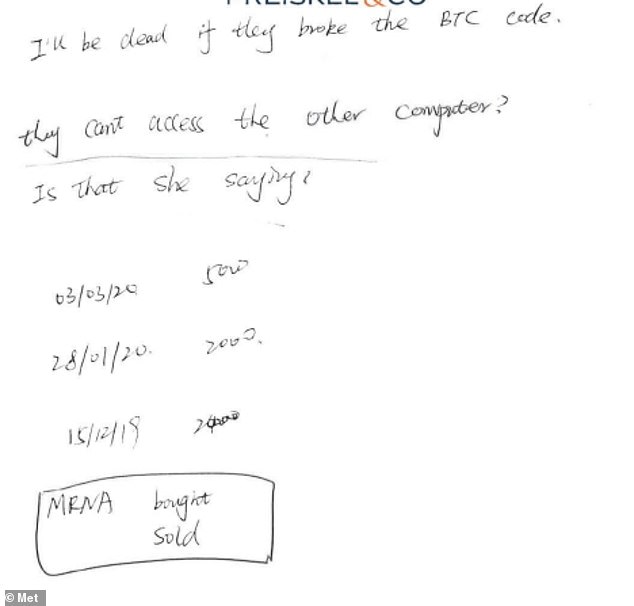 PREISKEL&CO
I'll be dead if they broke the BTC code.
they cant access the other computer?
Is that she saying?
03/03/20 5000
28/01/20. 2000.
15/12/19
MRNA bought
sold
© Met